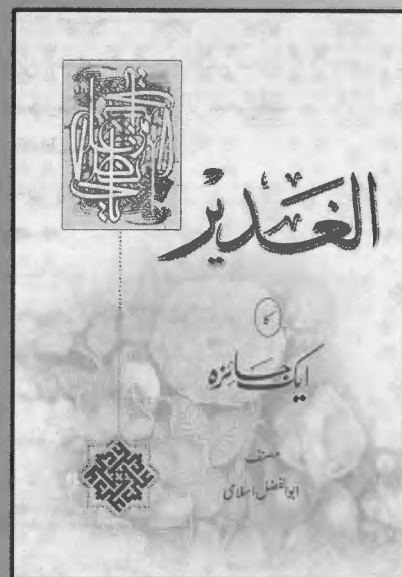 الغدیر
کا
ایک جائزہ
مصنف
ابوالفضل اسلامی